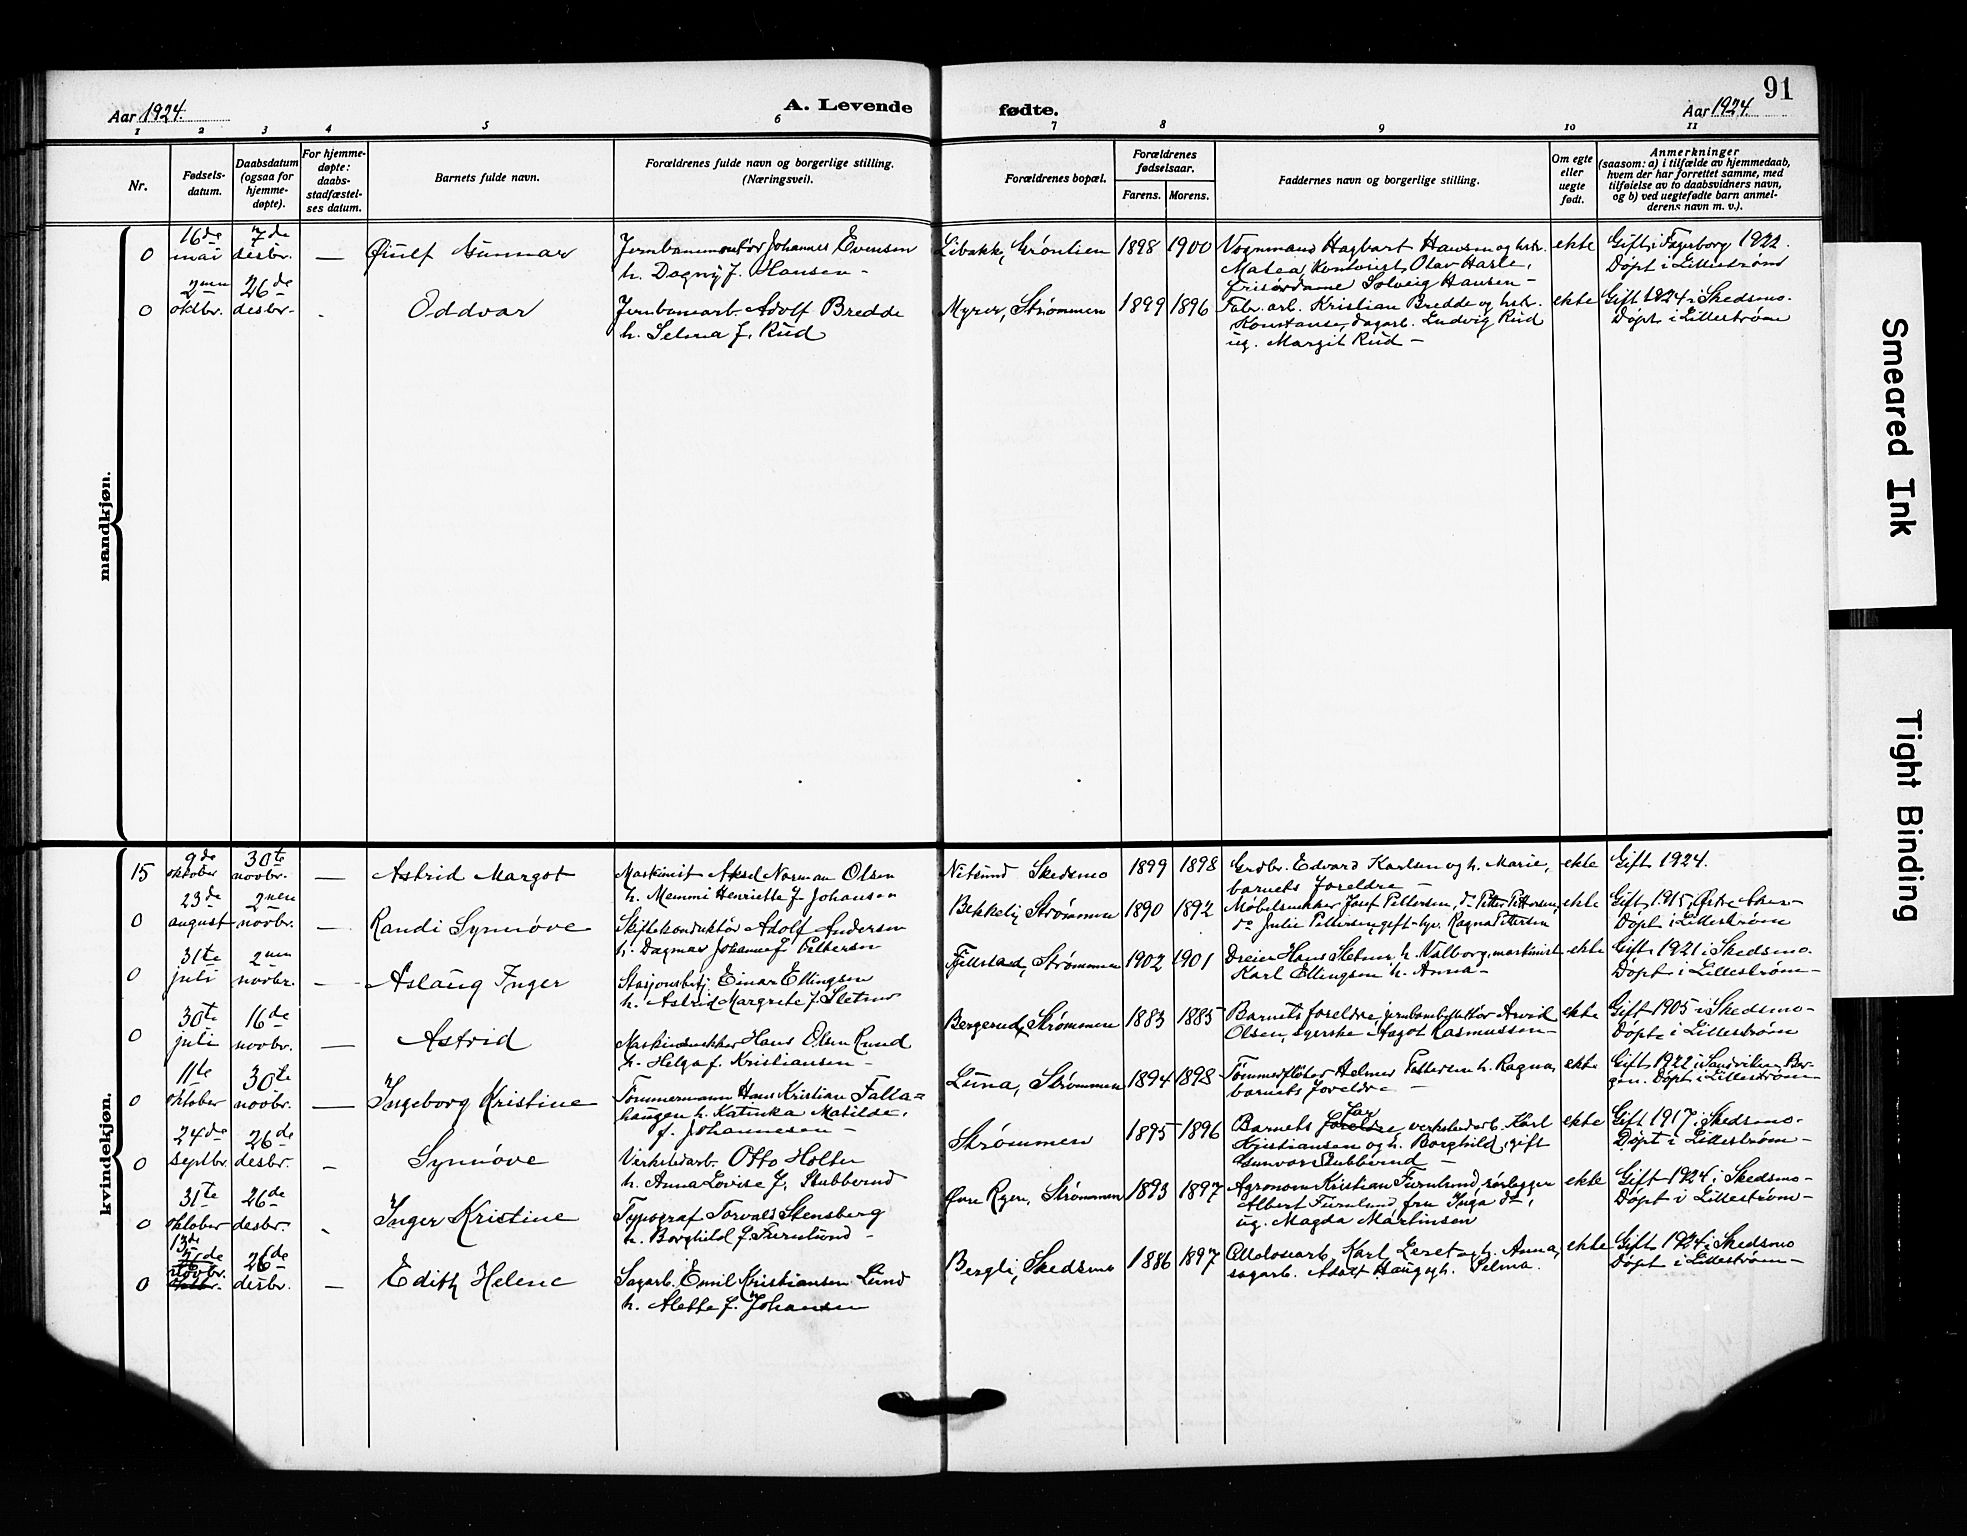 91
Aar 1924.
A. Levende
fødte.
Aar 1924.
1 2 3 4 5 6 7 8 9 10 11
Nr.
Fødsels-
datum.
Daabsdatum
(ogsaa for
hjemme-
døpte).
For hjemme-
døpte:
daabs-
stadfæstel-
ses datum.
Barnets fulde navn.
Forældrenes fulde navn og borgerlige stilling.
(Næringsvei).
Forældrenes bopæl.
Forældrenes
fødselsaar.
Farens. Morens.
Faddernes navn og borgerlige stilling.
Om egte
eller
uegte
født.
Anmerkninger
(saasom: a) i tilfælde av hjemmedaab,
hvem der har forrettet samme, med
tilføielse av to daabsvidners navn,
og b) ved uegtefødte barn anmel-
derens navn m. v.).
mandkjøn.
0
16de
mai
7de
desbr.
—
Øiulf Gunnar
Jernbanemontør Johannes Evensen
h. Dagny f. Hansen -
Libakk, Grøntien
1898
1900
Vognmand Hagbart Hansen og hstr.
Matea, Olav Harle,
Frisørdame Solveig Hansen -
ekte
Gift i Fagerborg 1922.
Døpt i Lillestrøm
0
2nen
oktbr.
26de
desbr.
-
Oddvar
Jernbanearb. Adolf Bredde
h. Selma f. Rud
Myrer, Strømmen
1899
1896
Fabr. arb. Kristian Bredde og hstr.
Konstanse, dagarb. Ludvig Rud
ug. Margit Rud -
ekte
Gift 1924 i Skedsmo.
Døpt i Lillestrøm
kvindekjøn.
15
9de
oktober
30te
novbr.
—
Astrid Margot
Maskinist Aksel Norman Olsen
h. Memmi Henriette f. Johansen
Nitsund Skedsmo
1899
1898
Grdbr. Edvard Karlsen og h. Marie,
barnets foreldre -
ekte
Gift 1924.
0
23de
august
2nen
novbr.
—
Randi Synnøve
Skiftekonduktør Adolf Andersen
h. Dagmar Johanne f. Pettersen
Bekkeli, Strømmen
1890
1892
Møbelsnekker Josef Pettersen, do Petter Pettersen,
do Julie Pettersen, gift Ragna Pettersen
ekte
Gift 1915 i Østre Aker-
Døpt i Lillestrøm
0
31te
juli
2nen
novbr.
—
Aslaug Inger
Stasjonsbetj. Einar Ellingsen
h. Astrid Margrete f. Sletner
Fjellstad, Strømmen
1902
1901
Dreier Hans Sletner, h. Valborg, maskinist
Karl Ellingsen h. Anna -
ekte
Gift 1921 i Skedsmo.
Døpt i Lillestrøm -
0
30te
juli
16de
novbr.
—
Astrid
Maskinsnekker Hans Olsen Rund
h. Helga f. Kristiansen -
Bergerud, Strømmen
1883
1885
Barnets foreldre, Arvid
Olsen, syerske Aagot Rasmussen -
ekte
Gift 1905 i Skedsmo -
Døpt i Lillestrøm
0
11te
oktober
30te
novbr.
—
Ingeborg Kristine
Tømmermann Hans Kristian Falla-
haugen h. Katinka Matilde,
f. Johannesen -
Luna, Strømmen
1894
1898
Tømmerfløter Helmer Pettersen h. Ragna,
barnets foreldre -
ekte
Gift 1922 i Sandviken, Ber-
gen. Døpt i Lillestrøm
0
24de
septbr.
26de
desbr.
-
Synnøve
Verkstedarb. Otto Holter
h. Anna Lovise f. Stubberud
Strømmen
1895
1896
Barnets far, verkstedarb. Karl
Kristiansen og h. Borghild, gift
Gunvor Stubberud -
ekte
Gift 1917 i Skedsmo.
Døpt i Lillestrøm -
0
31te
oktober
26de
desbr.
-
Inger Kristine
Typograf Torvald Stensberg
h. Borghild f. Furulund -
Øvre Ryen, Strømmen
1893
1897
Agronom Kristian Furulund, rørlegger
Albert Furulund, fru Inga do,
ug. Magda Martinsen
ekte
Gift 1924 i Skedsmo -
Døpt i Lillestrøm -
0
13de
novbr.
26de
desbr.
—
Edith Helene
Sagarb. Emil Kristiansen Lund
h. Alette f. Johansen
Bergli, Skedsmo
1886
1897
Karl Leret og h. Anna,
sagarb. Adolf Haug og h. Selma.
ekte
Gift 1924 i Skedsmo
Døpt i Lillestrøm -
Smeared Ink
Tight Binding